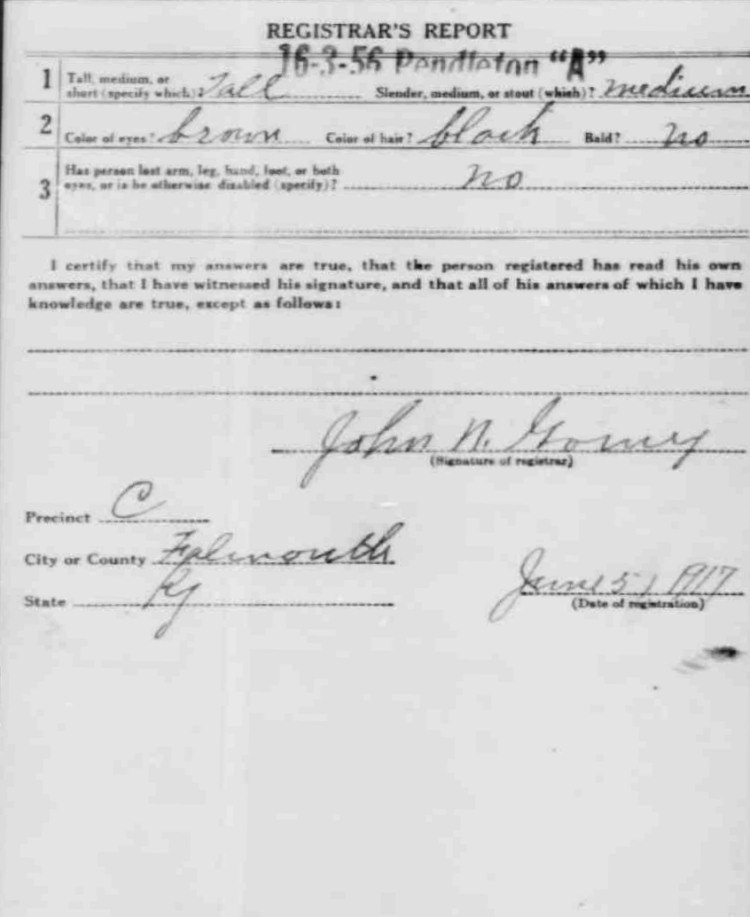 REGISTRAR'S REPORT
16-3-56 Pendleton "A"
1 Tall, medium, or
short (specify which)? Tall Slender, medium, or stout (which)? medium
2 Color of eyes? brown Color of hair? black Bald? no
3 Has person lost arm, leg, hand, foot, or both
eyes, or is he otherwise disabled (specify)? no
I certify that my answers are true, that the person registered has read his own
answers, that I have witnessed his signature, and that all of his answers of which I have
knowledge are true, except as follows:
John N.
(Signature of registrar)
Precinct C
City or County Falmouth
State Ky June 5, 1917
(Date of registration)